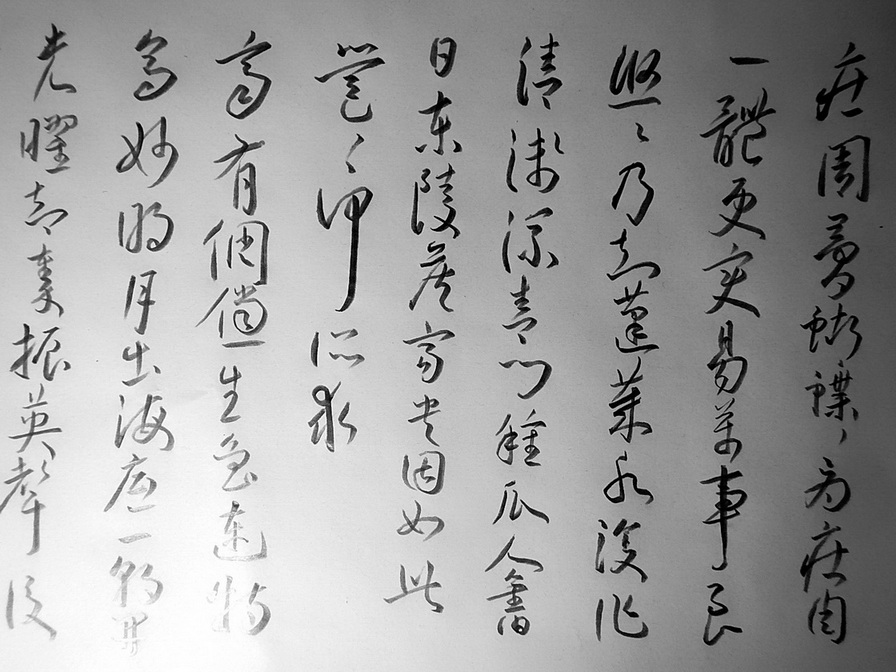 庄周夢蝴蝶〻為庄周
一體更變易萬事良
悠〻乃知蓬萊水復作
清淺流青門種瓜人舊
日東陵侯富貴固如此
營〻何所求
齊有倜儻生魯連特
高妙明月出海底一朝開
光曜却秦振英聲後